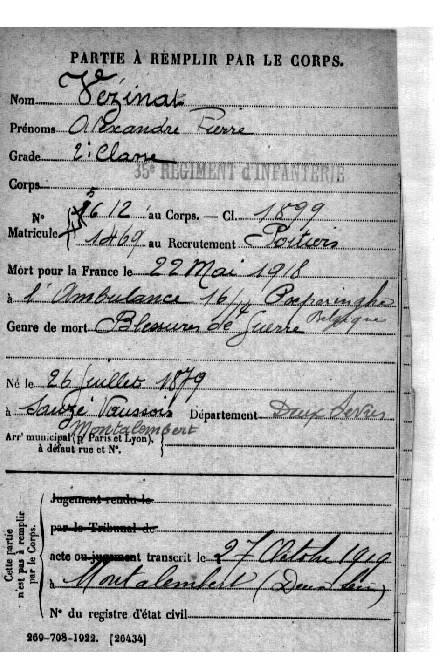 PARTIE À REMPLIR PAR LE CORPS.
Nom Vézinat
Prénoms Alexandre Pierre
Grade 2e Classe
Corps 35e REGIMENT d'INFANTERIE
N° 612 au Corps. — Cl. 1899
Matricule 1469 au Recrutement Poitiers
Mort pour la France le 22 Mai 1918
à l'Ambulance 16/4 Poperinghe
Belgique
Genre de mort Blessures de Guerre
Né le 26 juillet 1879
à Sauzé Vaussois Département Deux Sèvres
Montalembert
Arrt municipal (pr Paris et Lyon),
à défaut rue et N°.
Cette partie n'est pas à remplir par le Corps.
Jugement rendu le
par le Tribunal de
acte ou jugement transcrit le 27 Octobre 1919
à Montalembert (Deux Sèvres)
N° du registre d'état civil
260-708-1922. [26434]